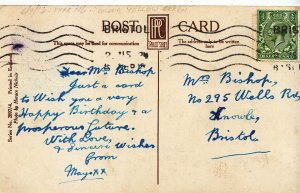 POST CARD
BRISTOL
This space may be used for communication
Printed in England.
Series No. 2897/4.
Dear Mrs Bishop
Just a card
to Wish you a very
Happy Birthday & a
prosperous Future.
With Love,
& Sincere Wishes
from
May. xx
Mrs Bishop,
No 295 Wells Rd,
Knowle,
Bristol.